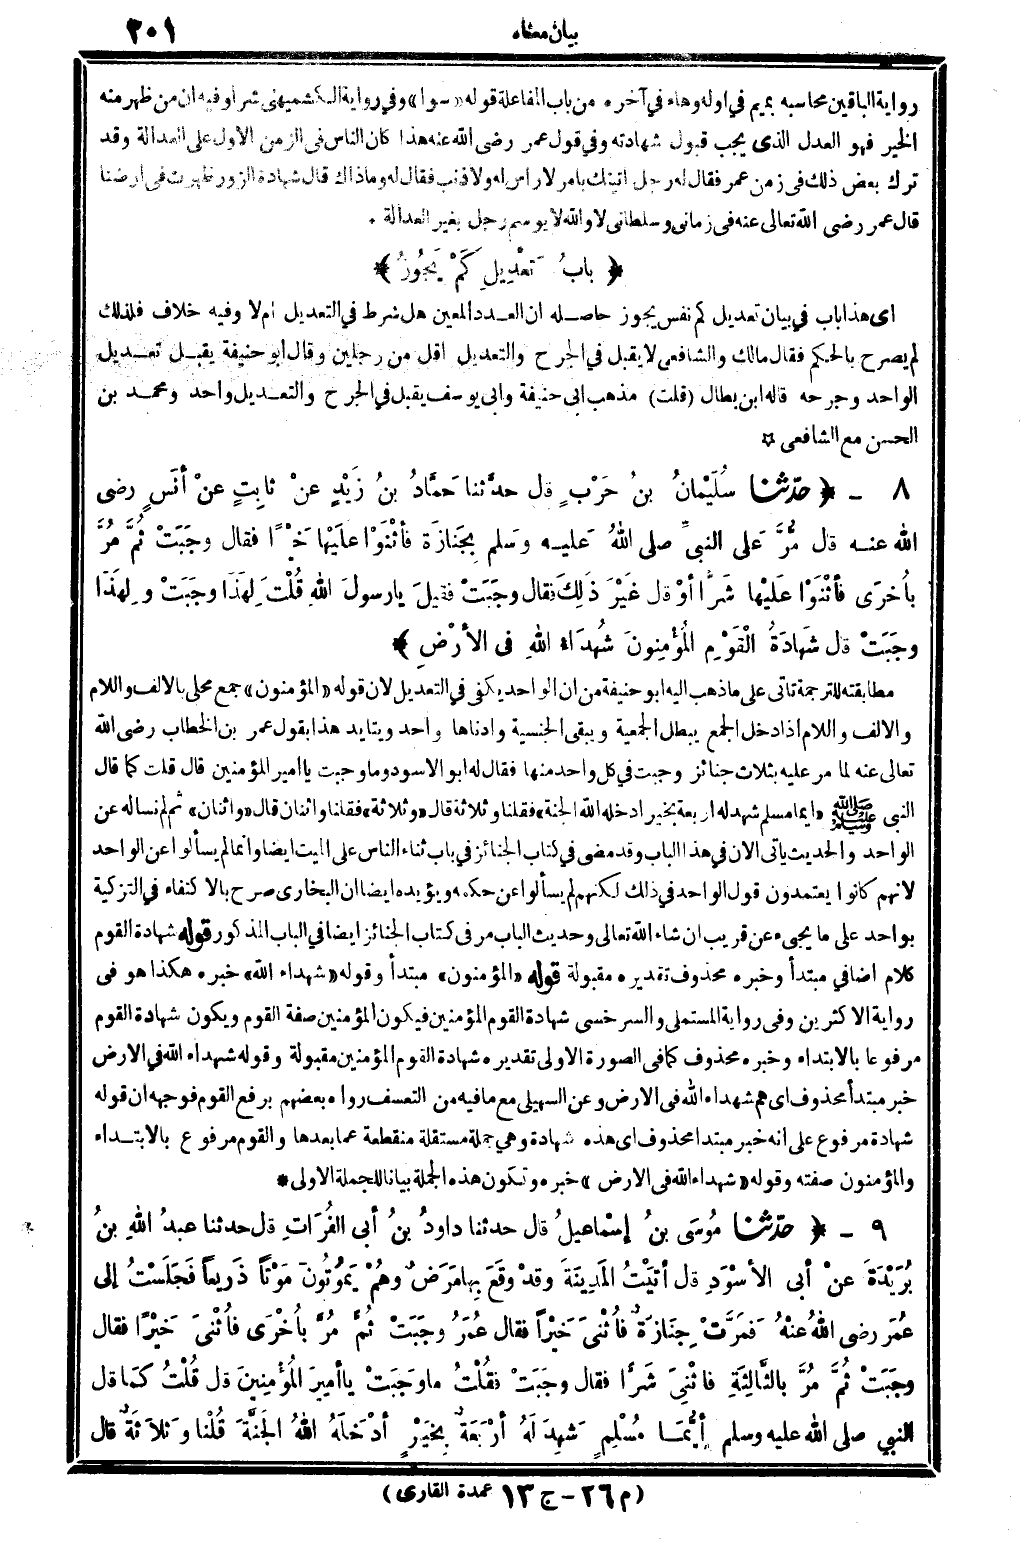 بيان معناه ٢٠١
رواية الباقين محاسبه بميم في اوله وهاء في آخره من باب المفاعلة قوله «سوا» وفي رواية الكشميهني شرا وفيه ان من ظهر منه
الخير فهو العدل الذى يجب قبول شهادته وفي قول عمر رضى الله عنه هذا كان الناس فى الزمن الاول على العدالة وقد
ترك بعض ذلك فى زمن عمر فقال له رجل اتيتك بامر لا راس له ولا ذنب فقال له وما ذاك قال شهادة الزور ظهرت فى ارضنا
قال عمر رضى الله تعالى عنه فى زمانى وسلطانى لا والله لا يوسم رجل بغير العدالة .
﴿ بابُ تَعْدِيلِ كَمْ يَجُوزُ ﴾
اى هذا باب في بيان تعديل كم نفس يجوز حاصله ان العدد المعين هل شرط في التعديل أم لا وفيه خلاف فلذلك
لم يصرح بالحكم فقال مالك والشافعى لا يقبل في الجرح والتعديل اقل من رجلين وقال أبو حنيفة يقبل تعديل
الواحد وجرحه قاله ابن بطال (قلت) مذهب ابى حنيفة وابى يوسف يقبل في الجرح والتعديل واحد ومحمد بن
الحسن مع الشافعى ☆
٨ - ﴿ حدّثنا سُلَيْمَانُ بنُ حَرْبٍ قال حدَّثنا حَمَّادُ بنُ زَيْدٍ عنْ ثابِتٍ عنْ أنَسٍ رضى
الله عنه قال مُرَّ عَلى النبيِّ صلى اللهُ عَليه وسَلم بِجَنازَة فأثْنَوْا علَيْهَا خَيْرًا فقال وجَبَتْ ثُمَّ مُرَّ
بأُخرَى فأثْنَوْا عَلَيْها شَرًّا أوْ قال غَيْرَ ذَلِكَ فقال وجَبَتْ فقيلَ يارسولَ اللهِ قُلْتَ لِهَذَا وجبَتْ ولِهَذَا
وجَبَتْ قال شَهَادَةُ الْقَوْمِ المُؤْمِنونَ شُهَدَاءُ اللهِ فى الأرْضِ ﴾
مطابقته للترجمة تاتى على ما ذهب اليه ابو حنيفة من ان الواحد يكفى في التعديل لان قوله «المؤمنون» جمع محلى بالالف واللام
والالف واللام اذا دخل الجمع يبطل الجمعية ويبقى الجنسية وادناها واحد ويتايد هذا بقول عمر بن الخطاب رضى الله
تعالى عنه لما مر عليه بثلاث جنائز وجبت في كل واحد منها فقال له ابو الاسود وما وجبت يا أمير المؤمنين قال قلت كما قال
النبى ﷺ «ايما مسلم شهد له اربعة بخير ادخله الله الجنة» فقلنا وثلاثة قال «وثلاثة» فقلنا واثنان قال «واثنان» ثم لم نساله عن
الواحد والحديث ياتى الآن في هذا الباب وقد مضى في كتاب الجنائز في باب ثناء الناس على الميت ايضا وانما لم يسألوا عن الواحد
لانهم كانوا يعتمدون قول الواحد في ذلك لكنهم لم يسألوا عن حكمه ويؤيده ايضا ان البخارى صرح بالاكتفاء في التزكية
بواحد على ما يجىء عن قريب ان شاء الله تعالى وحديث الباب مر فى كتاب الجنائز ايضا في الباب المذكور قوله شهادة القوم
كلام اضافي مبتدأ وخبره محذوف تقديره مقبولة قوله «المؤمنون» مبتدأ وقوله «شهداء الله» خبره هكذا هو فى
رواية الاكثرين وفى رواية المستملى والسرخسى شهادة القوم المؤمنين فيكون المؤمنين صفة القوم ويكون شهادة القوم
مرفوعا بالابتداء وخبره محذوف كما فى الصورة الاولى تقديره شهادة القوم المؤمنين مقبولة وقوله شهداء الله في الارض
خبر مبتدأ محذوف اى هم شهداء الله فى الارض وعن السهيلى مع ما فيه من التعسف رواه بعضهم برفع القوم فوجهه ان قوله
شهادة مرفوع على انه خبر مبتدا محذوف اى هذه شهادة وهى جملة مستقلة منقطعة عما بعدها والقوم مرفوع بالابتداء
والمؤمنون صفته وقوله «شهداء الله فى الارض» خبره وتكون هذه الجملة بيانا للجملة الاولى *
٩ - ﴿ حدّثنا مُوسَى بنُ إسْماعيلَ قال حدثنا داودُ بنُ أبى الفُرَاتِ قال حدثنا عبدُ اللهِ بنُ
بُرَيْدَةَ عنْ أبى الأسْوَدِ قال أتَيْتُ المَدِينَةَ وقدْ وقَعَ بِها مَرَضٌ وهُمْ يَمُوتُونَ مَوْتاً ذَرِيعاً فَجَلَسْتُ إلى
عُمَرَ رضى اللهُ عنْهُ فَمَرَّتْ جِنَازَةٌ فأُثْنىَ خَيْراً فقال عُمَرُ وجَبَتْ ثُمَّ مُرَّ بأُخْرَى فأُثْنىَ خَيْرًا فقال
وجَبَتْ ثُمَّ مُرَّ بالثَّالِثَةِ فأُثْنِىَ شَرًّا فقال وجَبَتْ فقُلْتُ ما وَجَبَتْ يا أميرَ المُؤْمِنِينَ قال قُلْتُ كَمَا قال
النبي صلى الله عليه وسلم أيُّمَا مُسْلِمٍ شَهِدَ لَهُ أرْبَعَةٌ بِخَيْرٍ أدْخَلَهُ اللهُ الجَنَّةَ قُلْنا وثَلاَثَةٌ قال
(م ٢٦ - ج ١٣ عمدة القارى)